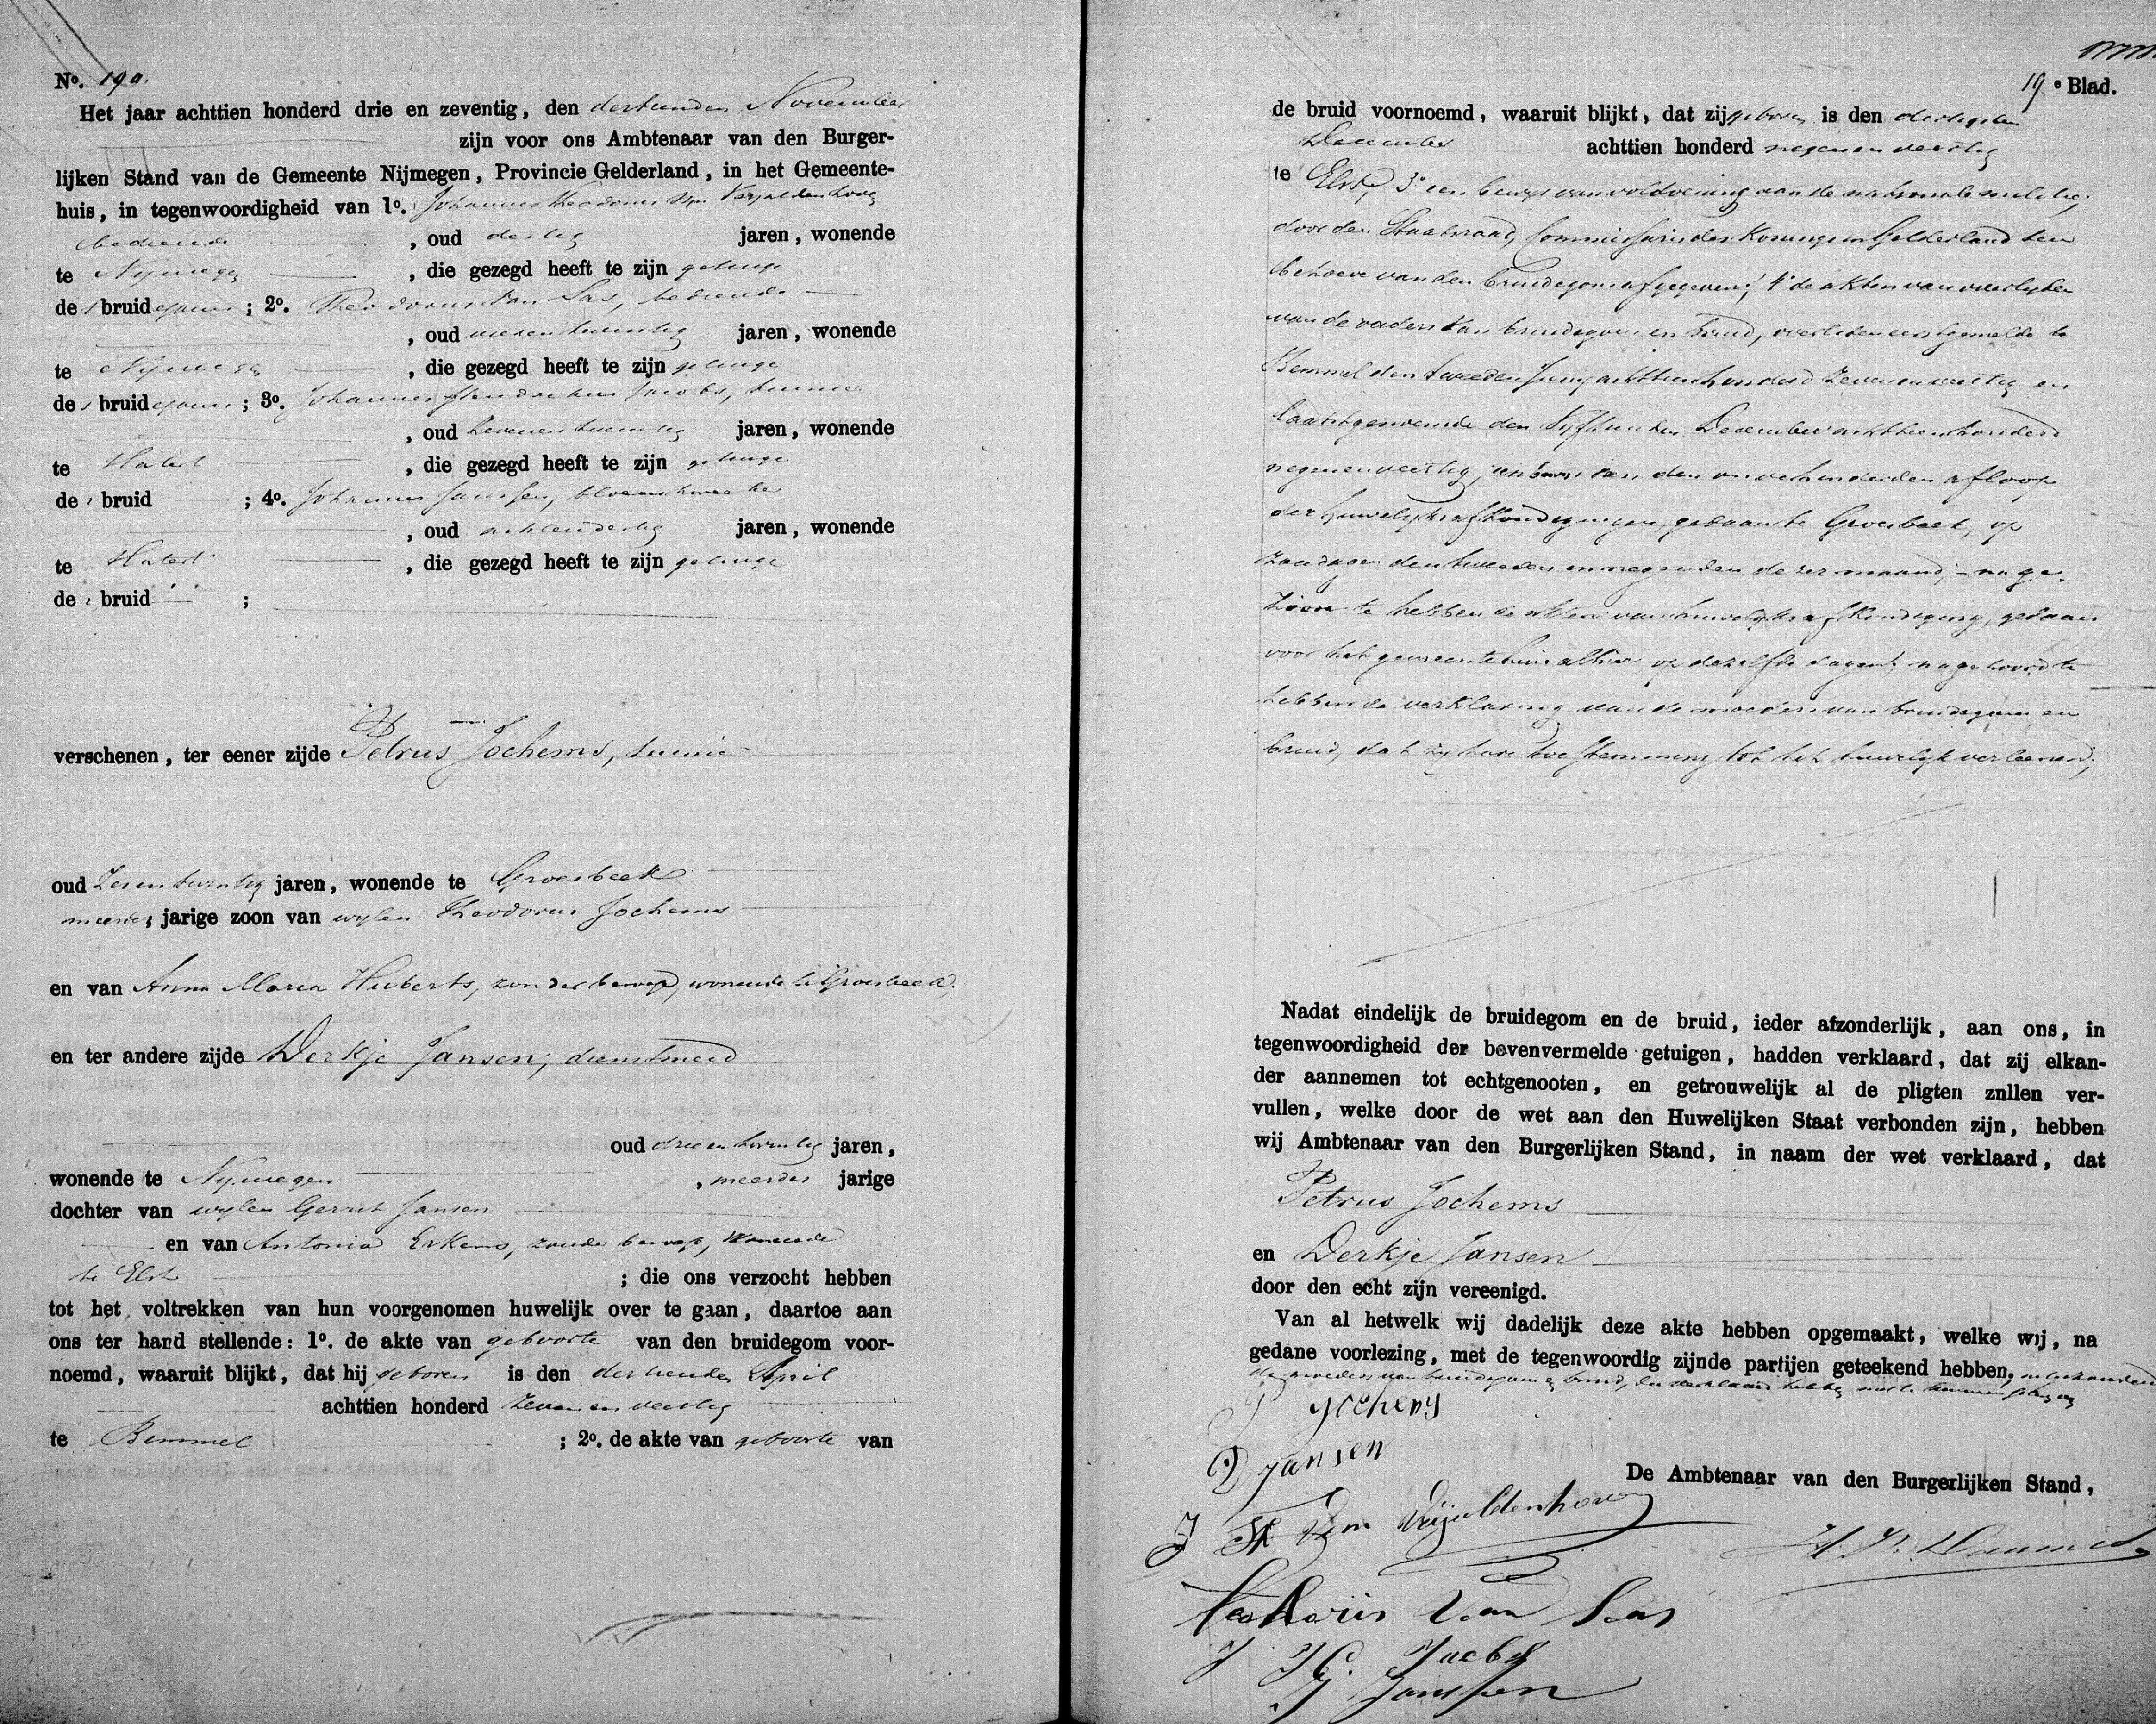 No. 190.
Het jaar achttien honderd drie en zeventig, den dertienden November
zijn voor ons Ambtenaar van den Burger-
lijken Stand van de Gemeente Nijmegen, Provincie Gelderland, in het Gemeente-
huis, in tegenwoordigheid van 1o. Johannes Theodorus van
bediende, oud dertig jaren, wonende
te Nijmegen, die gezegd heeft te zijn getuige
des bruidegoms; 2o. Theodorus van Sas, bediende
, oud jaren, wonende
te Nijmegen, die gezegd heeft te zijn getuige
des bruidegoms; 3o. Johannes Hendrikus Jacobs,
, oud zevenentwintig jaren, wonende
te Hatert, die gezegd heeft te zijn getuige
der bruid; 4o. Johannes Janssen, bloemkweeker
, oud achtendertig jaren, wonende
te Hatert, die gezegd heeft te zijn getuige
der bruid;
verschenen, ter eener zijde Petrus Jochems,
oud zesentwintig jaren, wonende te Groesbeek
meerderjarige zoon van wijlen Theodorus Jochems
en van Anna Maria Huberts, zonder beroep, wonende te Groesbeek,
en ter andere zijde Derkje Jansen, dienstmeid
oud drieentwintig jaren,
wonende te Nijmegen, meerder jarige
dochter van wijlen Gerrit Jansen
en van Antonia Erkens, zonder beroep, wonende
te Elst; die ons verzocht hebben
tot het voltrekken van hun voorgenomen huwelijk over te gaan, daartoe aan
ons ter hand stellende: 1o. de akte van geboorte van den bruidegom voor-
noemd, waaruit blijkt, dat hij geboren is den dertienden April
achttien honderd zevenenveertig
te Bemmel; 2o. de akte van geboorte van
19e Blad.
de bruid voornoemd, waaruit blijkt, dat zij geboren is den dertigsten
December achttien honderd negenenveertig
te Elst, 3o een bewijs van voldoening aan de nationale militie,
door den Staatsraad, Commissaris des Konings in Gelderland ten
behoeve van den bruidegom afgegeven; 4o de akten van overlijden
van de vaders van bruidegom en bruid, overleden eerstgemelde te
Bemmel den tweeden Junij achttienhonderd zevenenveertig en
laatstgenoemde den vijftienden December achttienhonderd
negenenveertig; een bewijs van den onverhinderden afloop
der huwelijksafkondigingen, gedaan te Groesbeek, op
Zondagen den tweeden en negenden dezer maand; - na ge-
zien te hebben de akten van huwelijksafkondiging, gedaan
voor het gemeentehuis alhier op dezelfde dagen; na gehoord te
hebben de verklaring van de moeders van bruidegom en
bruid, dat zij hare toestemming tot het huwelijk verleenen;
Nadat eindelijk de bruidegom en de bruid, ieder afzonderlijk, aan ons, in
tegenwoordigheid der bovenvermelde getuigen, hadden verklaard, dat zij elkan-
der aannemen tot echtgenooten, en getrouwelijk al de pligten znllen ver-
vullen, welke door de wet aan den Huwelijken Staat verbonden zijn, hebben
wij Ambtenaar van den Burgerlijken Stand, in naam der wet verklaard, dat
Petrus Jochems
en Derkje Jansen
door den echt zijn vereenigd.
Van al hetwelk wij dadelijk deze akte hebben opgemaakt, welke wij, na
gedane voorlezing, met de tegenwoordig zijnde partijen geteekend hebben, uitgezonderd
de moeders van bruidegom en bruid, die verklaard hebben niet te kunnen
P Jochems
D Jansen
De Ambtenaar van den Burgerlijken Stand,
van Sas
J H. Jacobs
J Janssen